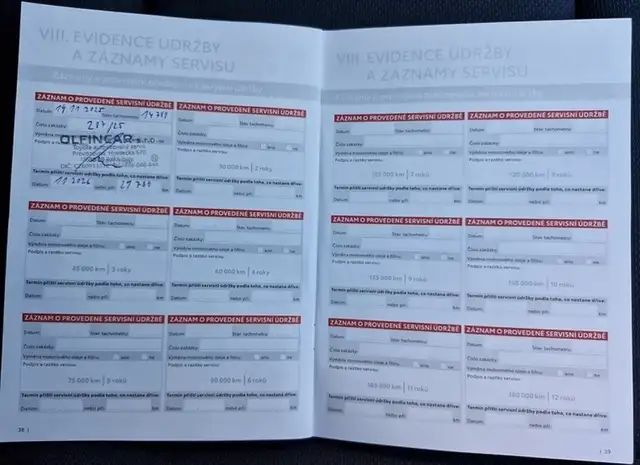 VIII. EVIDENCE ÚDRŽBY
A ZÁZNAMY SERVISU
ZÁZNAM O PROVEDENÉ SERVISNÍ ÚDRŽBĚ
Datum: 14 11 2025 Stav tachometru: 14 788
Číslo zakázky: 287/25
Výměna motorového oleje a filtru:
OLFINCAR s.r.o.
Termín příští servisní údržby podle toho, co nastane dříve:
Datum: 11 2026 nebo při: 29 788 km
ZÁZNAM O PROVEDENÉ SERVISNÍ ÚDRŽBĚ
Datum: Stav tachometru:
Číslo zakázky:
Výměna motorového oleje a filtru: ano ne
Podpis a razítko servisu:
30 000 km | 2 roky
Termín příští servisní údržby podle toho, co nastane dříve:
Datum: nebo při: km
ZÁZNAM O PROVEDENÉ SERVISNÍ ÚDRŽBĚ
Datum: Stav tachometru:
Číslo zakázky:
Výměna motorového oleje a filtru: ano ne
Podpis a razítko servisu:
45 000 km | 3 roky
Termín příští servisní údržby podle toho, co nastane dříve:
Datum: nebo při: km
ZÁZNAM O PROVEDENÉ SERVISNÍ ÚDRŽBĚ
Datum: Stav tachometru:
Číslo zakázky:
Výměna motorového oleje a filtru: ano ne
Podpis a razítko servisu:
60 000 km | 4 roky
Termín příští servisní údržby podle toho, co nastane dříve:
Datum: nebo při: km
ZÁZNAM O PROVEDENÉ SERVISNÍ ÚDRŽBĚ
Datum: Stav tachometru:
Číslo zakázky:
Výměna motorového oleje a filtru: ano ne
Podpis a razítko servisu:
75 000 km | 5 roků
Termín příští servisní údržby podle toho, co nastane dříve:
Datum: nebo při: km
ZÁZNAM O PROVEDENÉ SERVISNÍ ÚDRŽBĚ
Datum: Stav tachometru:
Číslo zakázky:
Výměna motorového oleje a filtru: ano ne
Podpis a razítko servisu:
90 000 km | 6 roků
Termín příští servisní údržby podle toho, co nastane dříve:
Datum: nebo při: km
38 |
VIII. EVIDENCE ÚDRŽBY
A ZÁZNAMY SERVISU
ZÁZNAM O PROVEDENÉ SERVISNÍ ÚDRŽBĚ
Datum: Stav tachometru:
Číslo zakázky:
Výměna motorového oleje a filtru: ano ne
Podpis a razítko servisu:
Termín příští servisní údržby podle toho, co nastane dříve:
Datum: nebo při: km
ZÁZNAM O PROVEDENÉ SERVISNÍ ÚDRŽBĚ
Datum: Stav tachometru:
Číslo zakázky:
Výměna motorového oleje a filtru: ano ne
Podpis a razítko servisu:
Termín příští servisní údržby podle toho, co nastane dříve:
Datum: nebo při: km
ZÁZNAM O PROVEDENÉ SERVISNÍ ÚDRŽBĚ
Datum: Stav tachometru:
Číslo zakázky:
Výměna motorového oleje a filtru: ano ne
Podpis a razítko servisu:
135 000 km | 9 roků
Termín příští servisní údržby podle toho, co nastane dříve:
Datum: nebo při: km
ZÁZNAM O PROVEDENÉ SERVISNÍ ÚDRŽBĚ
Datum: Stav tachometru:
Číslo zakázky:
Výměna motorového oleje a filtru: ano ne
Podpis a razítko servisu:
150 000 km | 10 roků
Termín příští servisní údržby podle toho, co nastane dříve:
Datum: nebo při: km
ZÁZNAM O PROVEDENÉ SERVISNÍ ÚDRŽBĚ
Datum: Stav tachometru:
Číslo zakázky:
Výměna motorového oleje a filtru: ano ne
Podpis a razítko servisu:
165 000 km | 11 roků
Termín příští servisní údržby podle toho, co nastane dříve:
Datum: nebo při: km
ZÁZNAM O PROVEDENÉ SERVISNÍ ÚDRŽBĚ
Datum: Stav tachometru:
Číslo zakázky:
Výměna motorového oleje a filtru: ano ne
Podpis a razítko servisu:
180 000 km | 12 roků
Termín příští servisní údržby podle toho, co nastane dříve:
Datum: nebo při: km
| 39